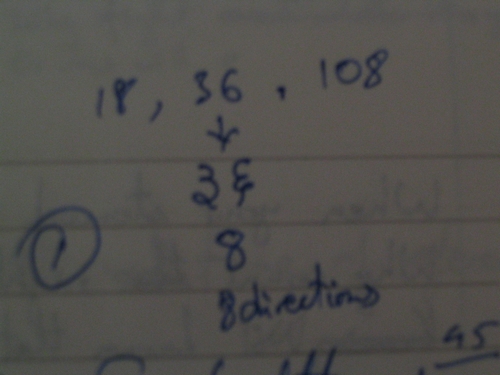 18, 36, 108
↓
36
① 8
8 directions
45